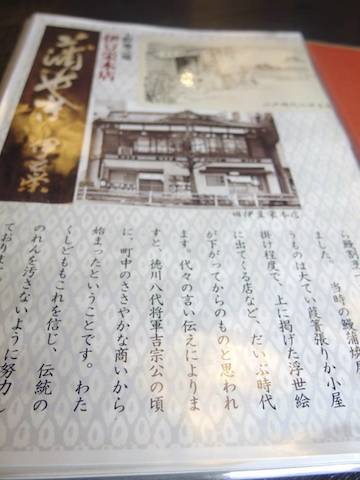 蒲焼
伊豆栄
伊豆栄本店
旧伊豆栄本店
ました。当時の鰻蒲焼屋
うものは大てい葭簀張りか小屋
掛け程度で、上に掲げた浮世絵
に出てくる店など、だいぶ時代
が下がってからのものと思われ
ます。代々の言い伝えによりま
すと、徳川八代将軍吉宗公の頃
に、町中のささやかな商いから
始まったということです。わた
くしどももこれを信じ、伝統の
のれんを汚さないように努力し
ております